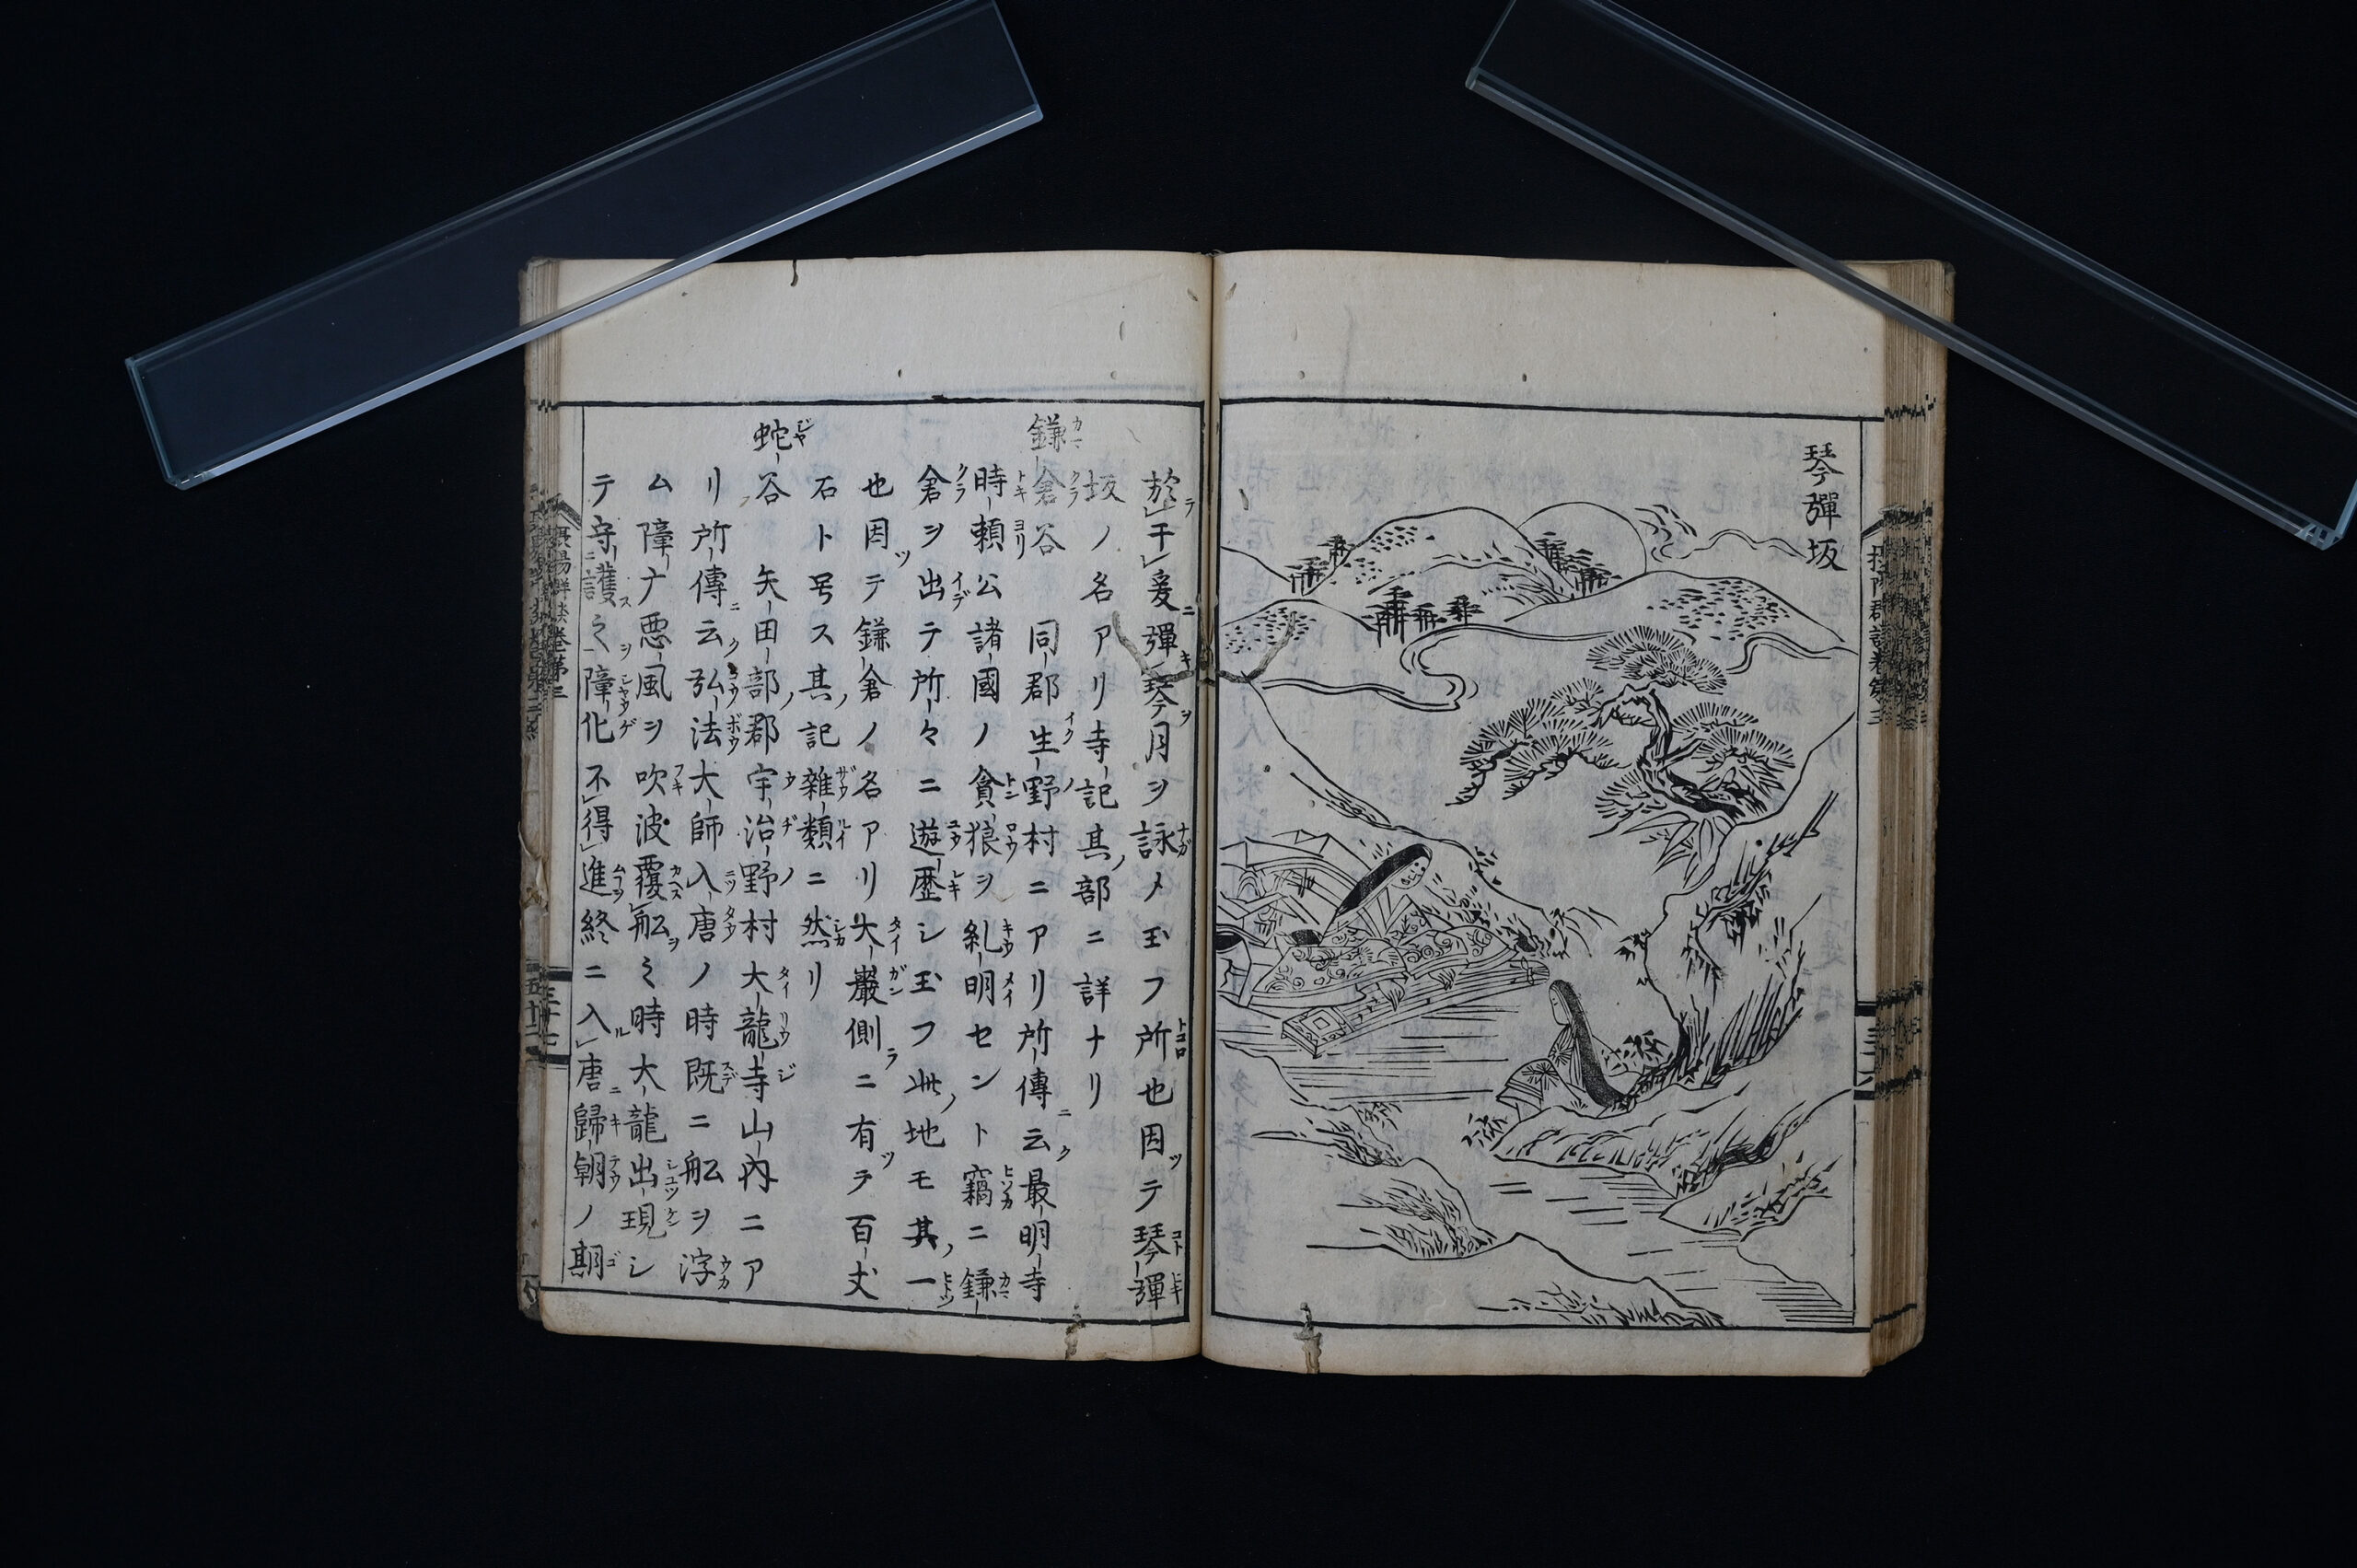 琴彈坂
於テ干爰ニ彈キ琴ヲ月ヲ詠メ玉フ所也因ツテ琴彈
坂ノ名アリ寺記其ノ部ニ詳ナリ
鎌倉谷 同郡生野村ニアリ所傳ニ云ク最明寺
時頼公諸國ノ貪狼ヲ糺明セント竊ニ鎌
倉ヲ出テ所々ニ遊歷シ玉フ此ノ地モ其ノ一
也因ツテ鎌倉ノ名アリ大巖側ラニ有ツテ百丈
石ト号ス其ノ記雜類ニ然リ
蛇谷 矢田部ノ郡宇治野村大龍寺山内ニア
リ所傳ニ云ク弘法大師入唐ノ時既ニ舩ヲ浮
ム障ナ悪風ヲ吹波覆舩ヲミ時大龍出現シ
テ守ニ護ス之ヲ障化不得進終ニ入ル唐ニ歸朝ノ期